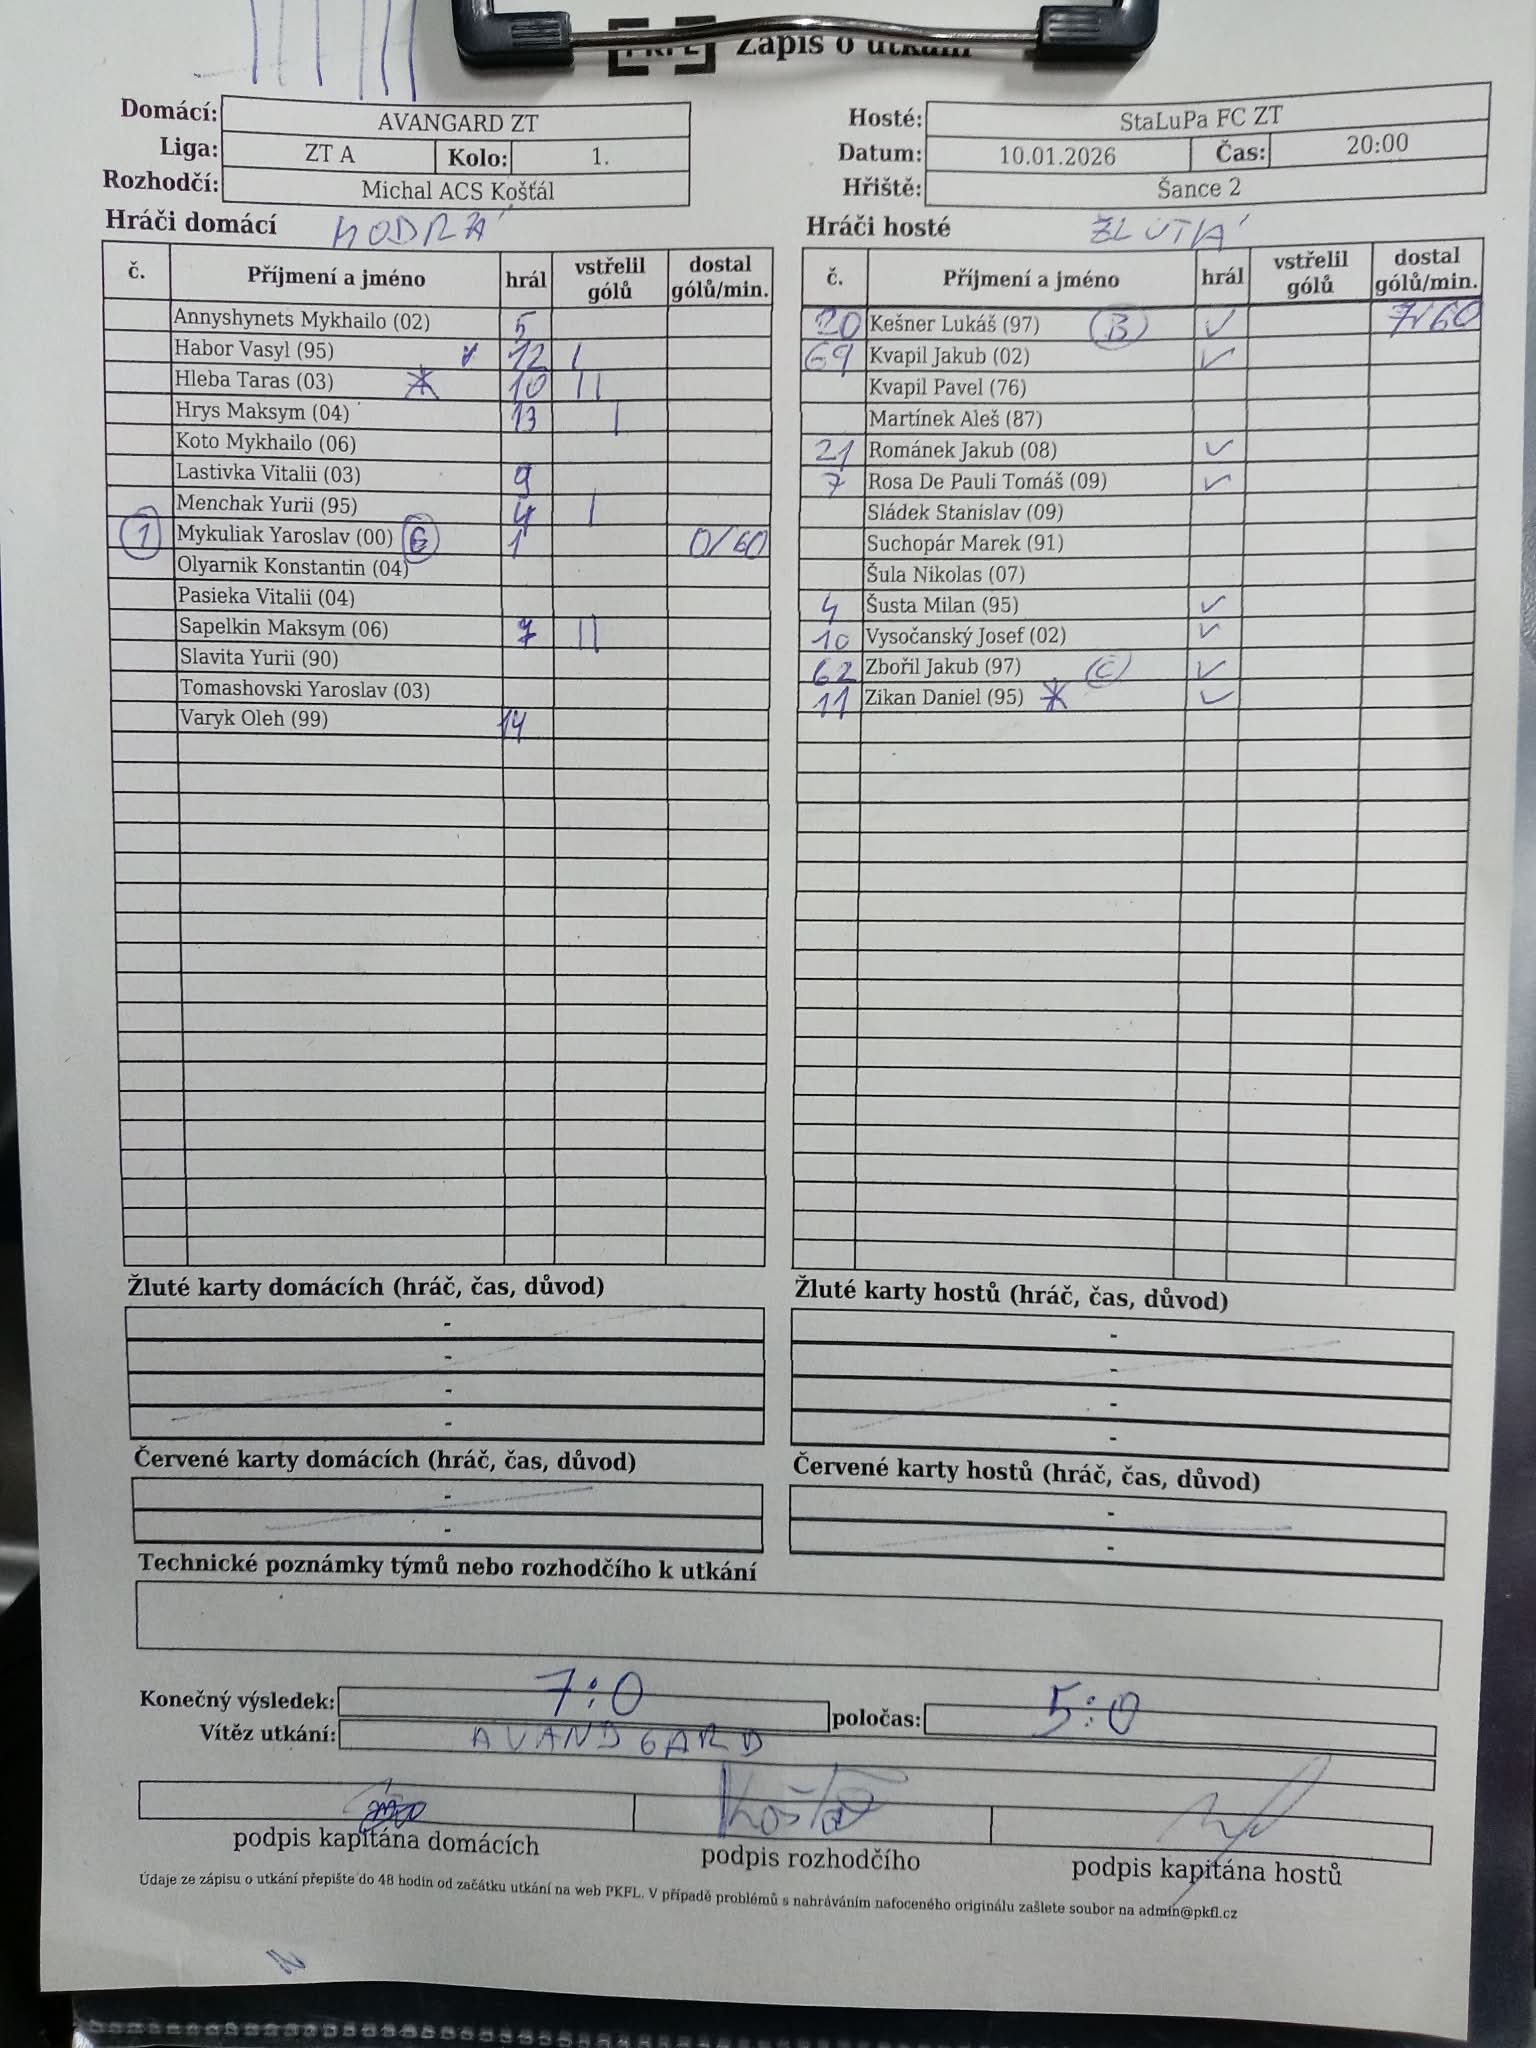 PKFL Zápis o utkání
Domácí: AVANGARD ZT
Liga: ZT A Kolo: 1.
Rozhodčí: Michal ACS Košťál
Hosté: StaLuPa FC ZT
Datum: 10.01.2026 Čas: 20:00
Hřiště: Šance 2
Hráči domácí MODRÁ
č. Příjmení a jméno hrál vstřelil gólů dostal gólů/min.
Annyshynets Mykhailo (02) 5
Habor Vasyl (95) 12 I
Hleba Taras (03) 10 II
Hrys Maksym (04) 13 I
Koto Mykhailo (06)
Lastivka Vitalii (03) 9
Menchak Yurii (95) 4 I
1 Mykuliak Yaroslav (00) 1 0/60
Olyarnik Konstantin (04)
Pasieka Vitalii (04)
Sapelkin Maksym (06) 7 II
Slavita Yurii (90)
Tomashovski Yaroslav (03)
Varyk Oleh (99) 14
Hráči hosté ŽLUTÁ
č. Příjmení a jméno hrál vstřelil gólů dostal gólů/min.
20 Kešner Lukáš (97) B ✓ 7/60
69 Kvapil Jakub (02) ✓
Kvapil Pavel (76)
Martínek Aleš (87)
21 Románek Jakub (08) ✓
7 Rosa De Pauli Tomáš (09) ✓
Sládek Stanislav (09)
Suchopár Marek (91)
Šula Nikolas (07)
4 Šusta Milan (95) ✓
10 Vysočanský Josef (02) ✓
62 Zbořil Jakub (97) C ✓
11 Zikan Daniel (95) * ✓
Žluté karty domácích (hráč, čas, důvod)
-
-
-
-
Žluté karty hostů (hráč, čas, důvod)
-
-
-
-
Červené karty domácích (hráč, čas, důvod)
-
-
Červené karty hostů (hráč, čas, důvod)
-
-
Technické poznámky týmů nebo rozhodčího k utkání
Konečný výsledek: 7:0 poločas: 5:0
Vítěz utkání: AVANDGARD
podpis kapitána domácích
Košťál
podpis rozhodčího
podpis kapitána hostů
Údaje ze zápisu o utkání přepište do 48 hodin od začátku utkání na web PKFL. V případě problémů s nahráváním nafoceného originálu zašlete soubor na admin@pkfl.cz